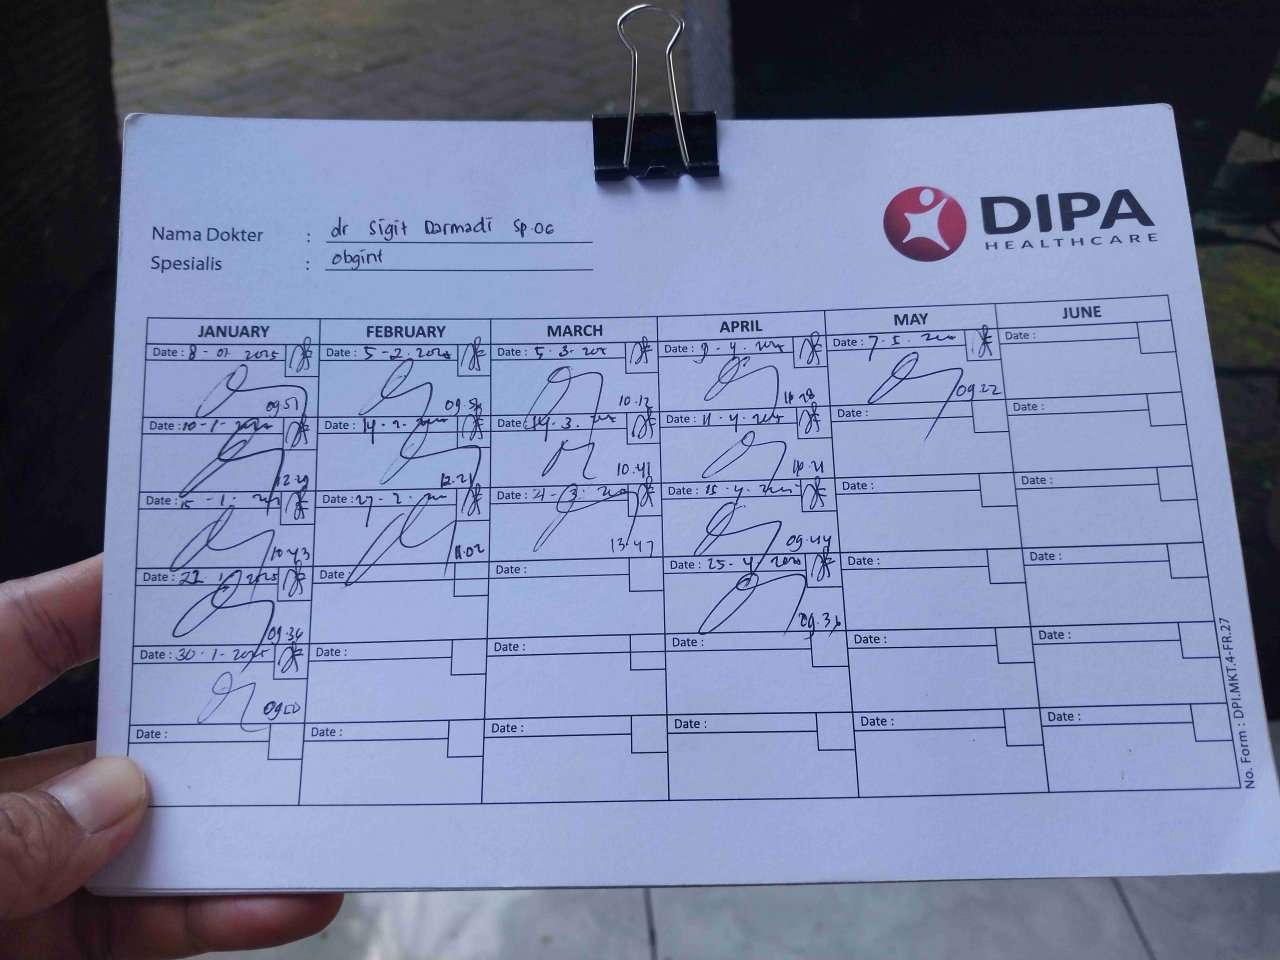 DIPA
HEALTHCARE
Nama Dokter : dr Sigit Darmadi Sp.OG
Spesialis : obgint
JANUARY FEBRUARY MARCH APRIL MAY JUNE
Date : 8-01 2025 Date : 5-2.2025 Date : 5.3.2025 Date : 9.4.2025 Date : 7.5.2025 Date :
09.51 09.54 10.12 10.28 09.22
Date : 10-1-2025 Date : 14.2.2025 Date : 14.3. Date : 11.4.2025 Date : Date :
12.29 12.21 10.41 10.21
Date : 15-1. Date : 27-2. Date : 21-3. Date : 15.4.2025 Date : Date :
10.43 11.02 13.47 09.44
Date : 22 1 2025 Date Date : Date : 25-4 2025 Date : Date :
09.36 09.36
Date : 30.1-2025 Date : Date : Date : Date : Date :
09.00
Date : Date : Date : Date : Date : Date :
No. Form : DPI.MKT.4-FR.27